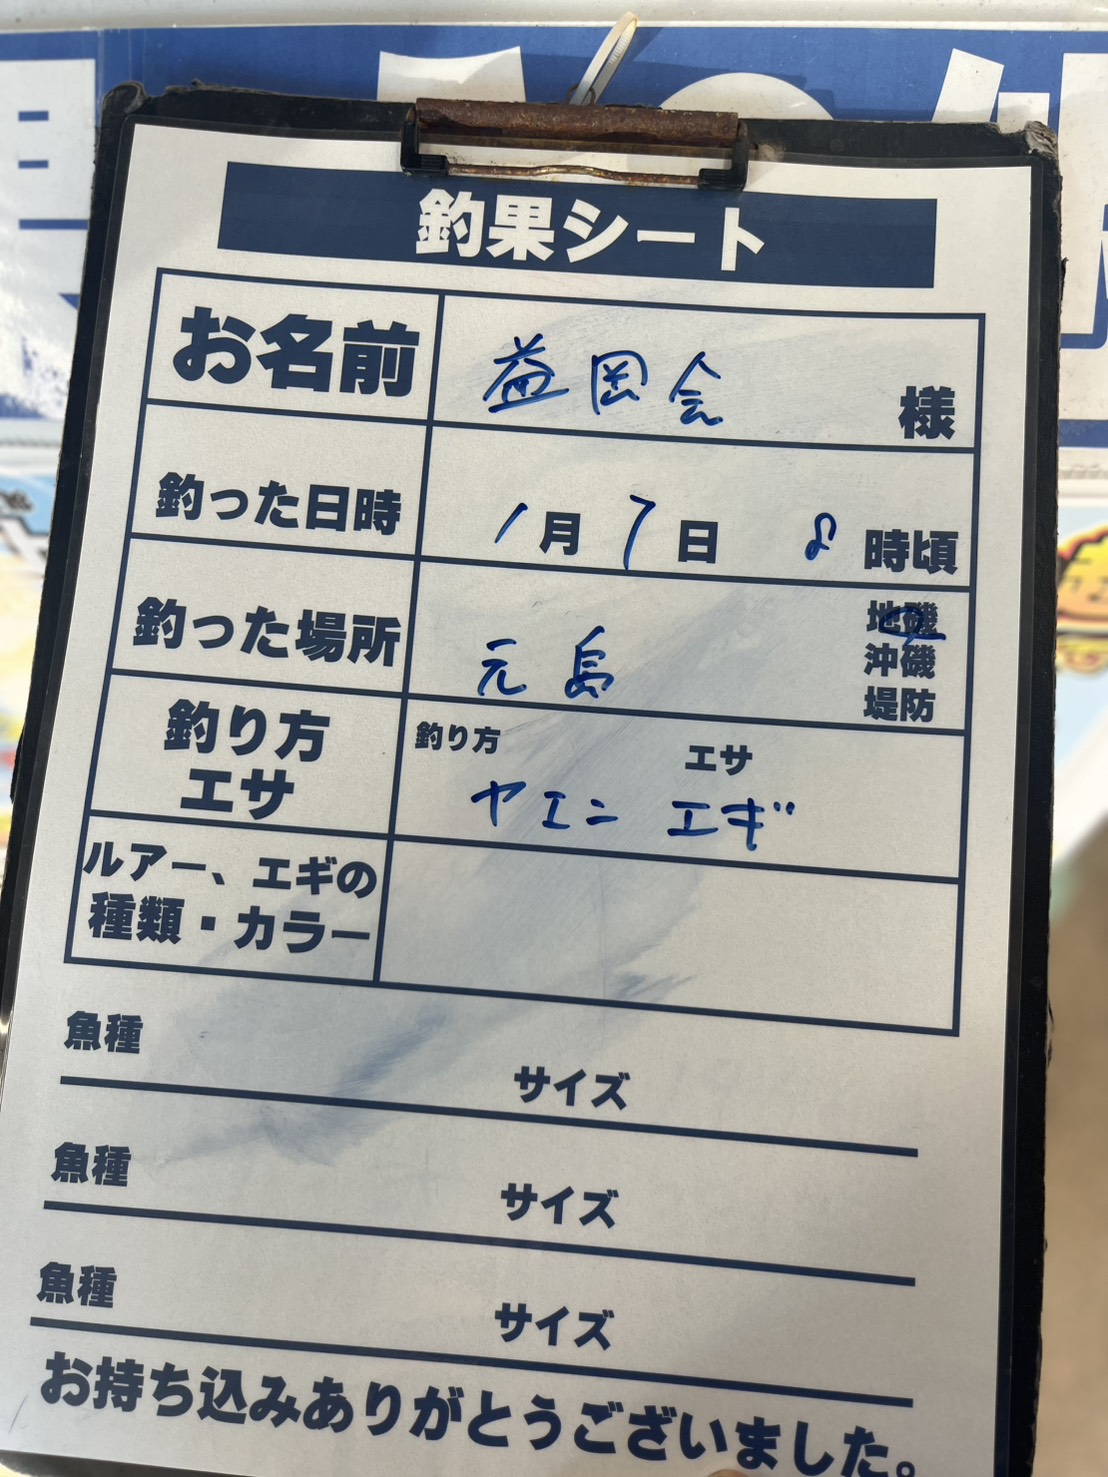 釣果シート
お名前 益岡会 様
釣った日時 1月7日 8時頃
釣った場所 元島 地磯
沖磯
堤防
釣り方 エサ
釣り方 エサ
ヤエン エギ
ルアー、エギの
種類・カラー
魚種 サイズ
魚種 サイズ
魚種 サイズ
お持ち込みありがとうございました。